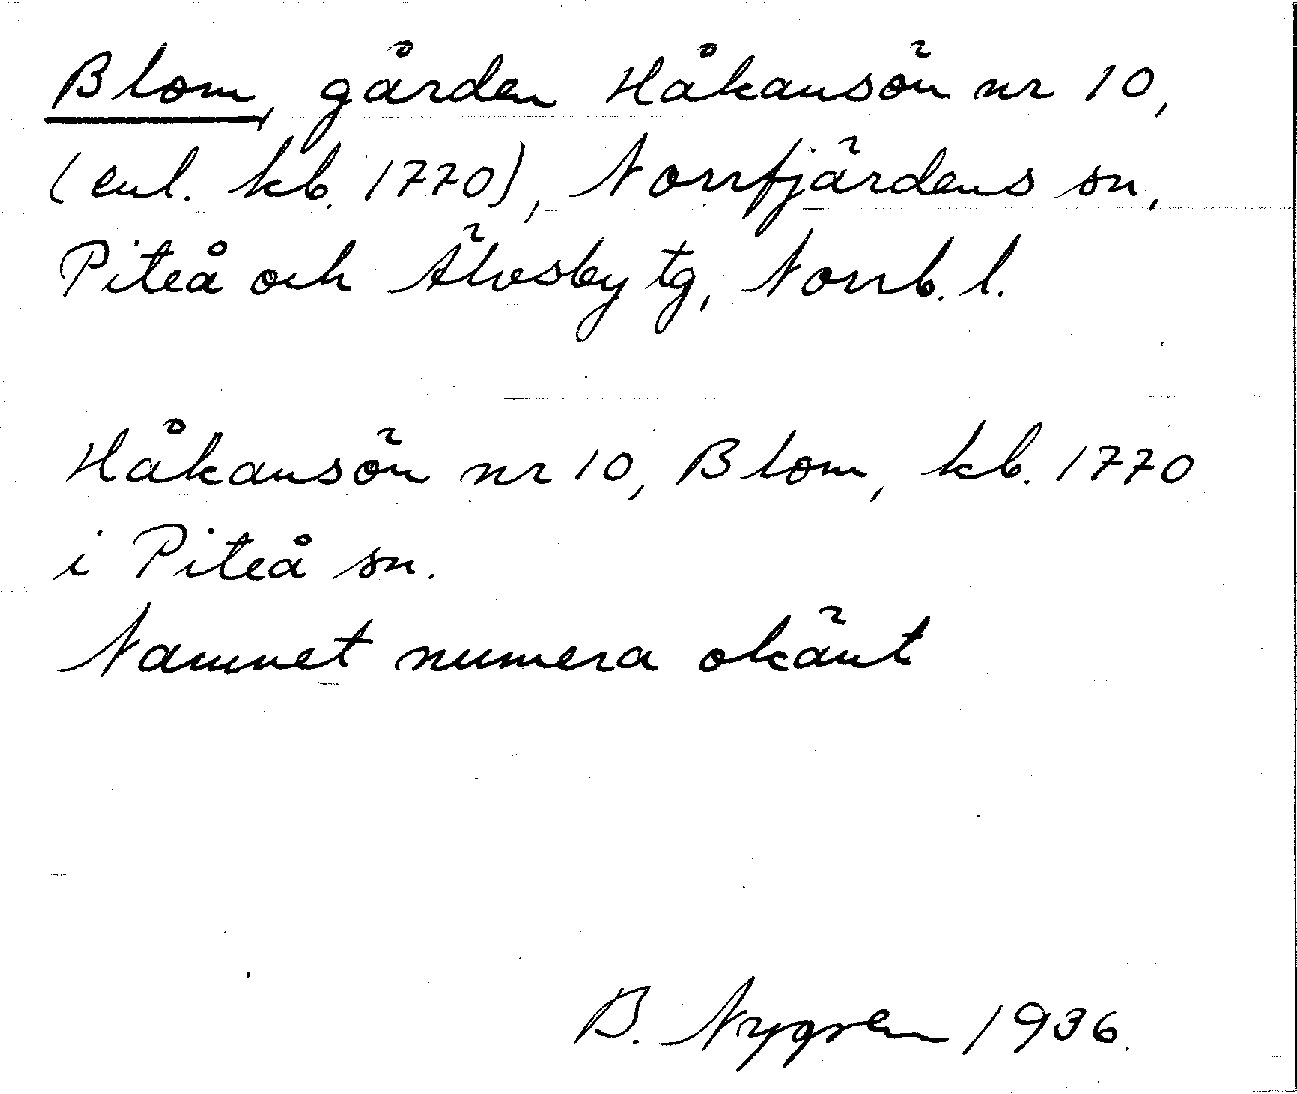 Blom, gården Håkansön nr 10,
(enl. kb. 1770), Norrfjärdens sn,
Piteå och Älvsby tg, Norrb. l.
Håkansön nr 10, Blom, kb. 1770
i Piteå sn.
Namnet numera okänt
B. Nygren 1936.